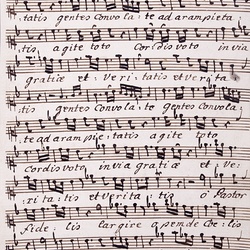 tatis gentes Convola: te ad aram pieta
tis agite toto Cordis voto in via
gratiæ et: veri: tatis et verita
tis gentes Convola: te gentes Convola:
te ad aram pie: tatis agite toto
Cordis voto in via gratiæ et: ve:
ri: ta: tis et verita tis ô Pastor
fide: lis largire opem de Coe: lis